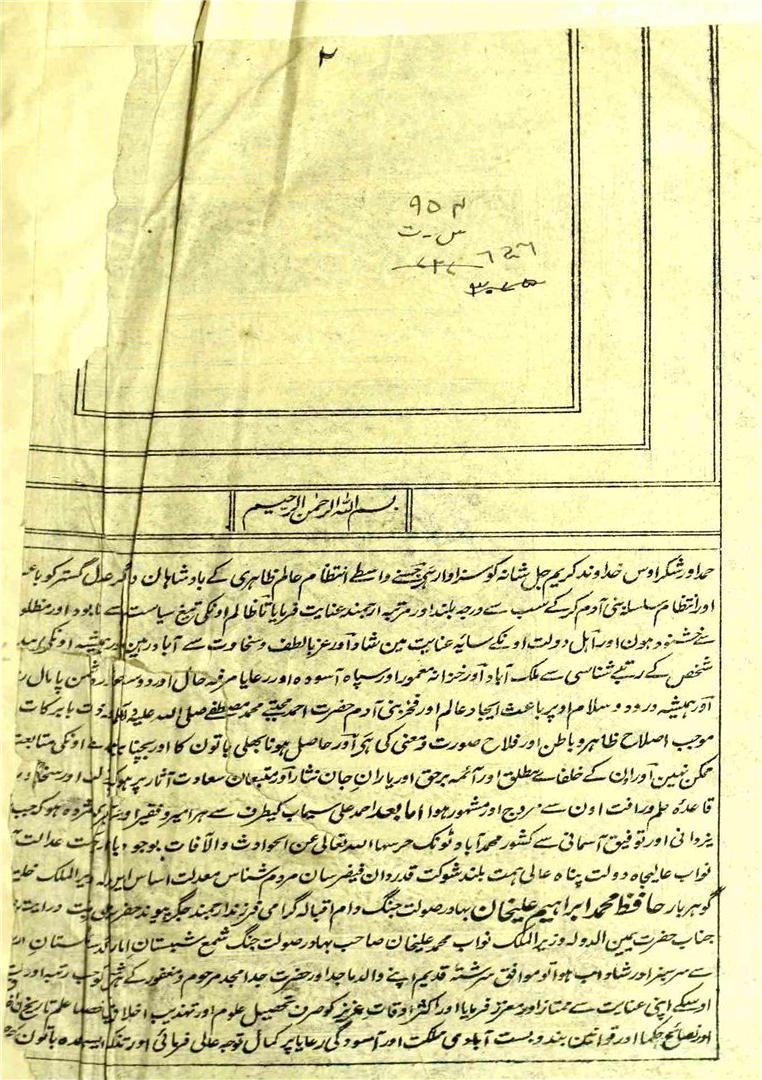 ۲
۹۵۴
س-ت
۶۴۶
بسم اللہ الرحمن الرحیم
حمد اور شکر اوس خداوند کریم جل شانہ کو سزاوار ہی جسنے واسطے انتظام عالم ظاہری کے بادشاہان عدل گستر کو
اور انتظام سلسلہ بنی آدم کر کے سب سے درجہ بلند اور مرتبہ ارجمند عنایت فرمایا تا ظالم اونکی تیغ سیاست سے نابود اور مظلو
سے خشنود ہون اور اہل دولت اونکے سایہ عنایت مین شاد اور غربا لطف و سخاوت سے آباد رہین اور ہمیشہ اونکی
شخص کے رتبے شناسی سے ملک آباد اور خزانہ معمور اور سپاہ آسودہ اور رعایا مرفہ حال اور دوست شاد دشمن پامال
اور ہمیشہ درود و سلام اوپر باعث ایجاد عالم اور فخر بنی آدم حضرت احمد مجتبے محمد مصطفے صلی اللہ علیہ بابرکات
موجب اصلاح ظاہر و باطن اور فلاح صورت و معنی کی ہی اور حاصل ہونا بھلی باتون کا اور بچنا اونکی متابعت
ممکن نہین اور اون کے خلفاے مطلق اور آئمہ برحق اور یاران جان نثار اور متبعان سعادت آثار پر
قاعدہ علم و رافت اون سے مروج اور مشہور ہوا اما بعد احمد علی سیماب کیطرف سے ہر امیر و فقیر اور مژدہ ہو کہ جب
یزدانی اور توفیق آسمانی سے کشور محمد آباد ٹونک حرسہا اللہ تعالی عن الحوادث والآفات بوجود عدالت
نواب عالیجاہ دولت پناہ عالی ہمت بلند شوکت قدردان فیضرسان مردم شناس معدلت اساس وزیر الملک
گوہربار حافظ محمد ابراہیم علیخان بہادر صولت جنگ دام اقبالہ گرامی فرزند ارجمند جگر پیوند حضرت
جناب حضرت یمین الدولہ وزیر الملک نواب محمد علیخان صاحب بہادر صولت جنگ شمع شبستان امارت
سے سرسبز اور شاداب ہوا تو موافق سررشتہ قدیم اپنے والد ماجد اور حضرت جد امجد مرحوم و مغفور کے ہر رتبہ اور
اوسکے اپنی عنایت سے ممتاز اور معزز فرمایا اور اکثر اوقات عزیز کو صرف تحصیل علوم اور تہذیب اخلاق خصوصا علم تاریخ
اور نصائح حکما اور قوانین بندوبست آبادی مملکت اور آسودگی رعایا پر کمال توجہ عالی فرمائی اور باتون